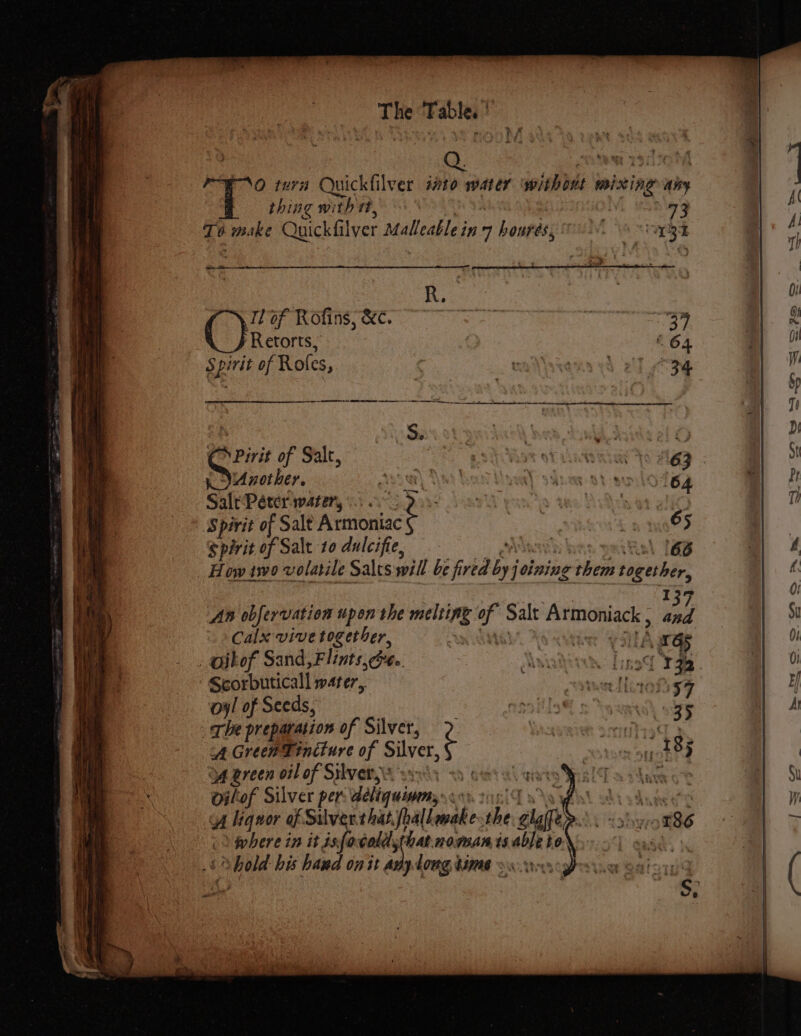 The Table.
Q.
TO turn Quickſilver into water without mixing any
thing with it, 73
To make Quickſilver Malleable in 7 houres, 131
R.
OIl of Roſins, &c. 37
Retorts, 64
Spirit of Roſes, 34
S.
SPirit of Salt, 63
Another. 64
Salt-Peter water,
Spirit of Salt Armoniac 65
Spirit of Salt to dulcifie, 66
How two volatile Salts will be fired by joining them together,
137
An obſervation upon the melting of Salt Armoniack, and
Calx vive together,
Oil of Sand, Flints, &c. 132
Scorbuticall water, 57
Oyl of Seeds, 35
The preparation of Silver,
A Green Tincture of Silver, 185
A green oil of Silver,
Oil of Silver per deliquium,
A liquor of Silver that ſhall make the glaſſe 186
where in it is ſo cold, that no man is able to
hold his hand on it any long time
S,